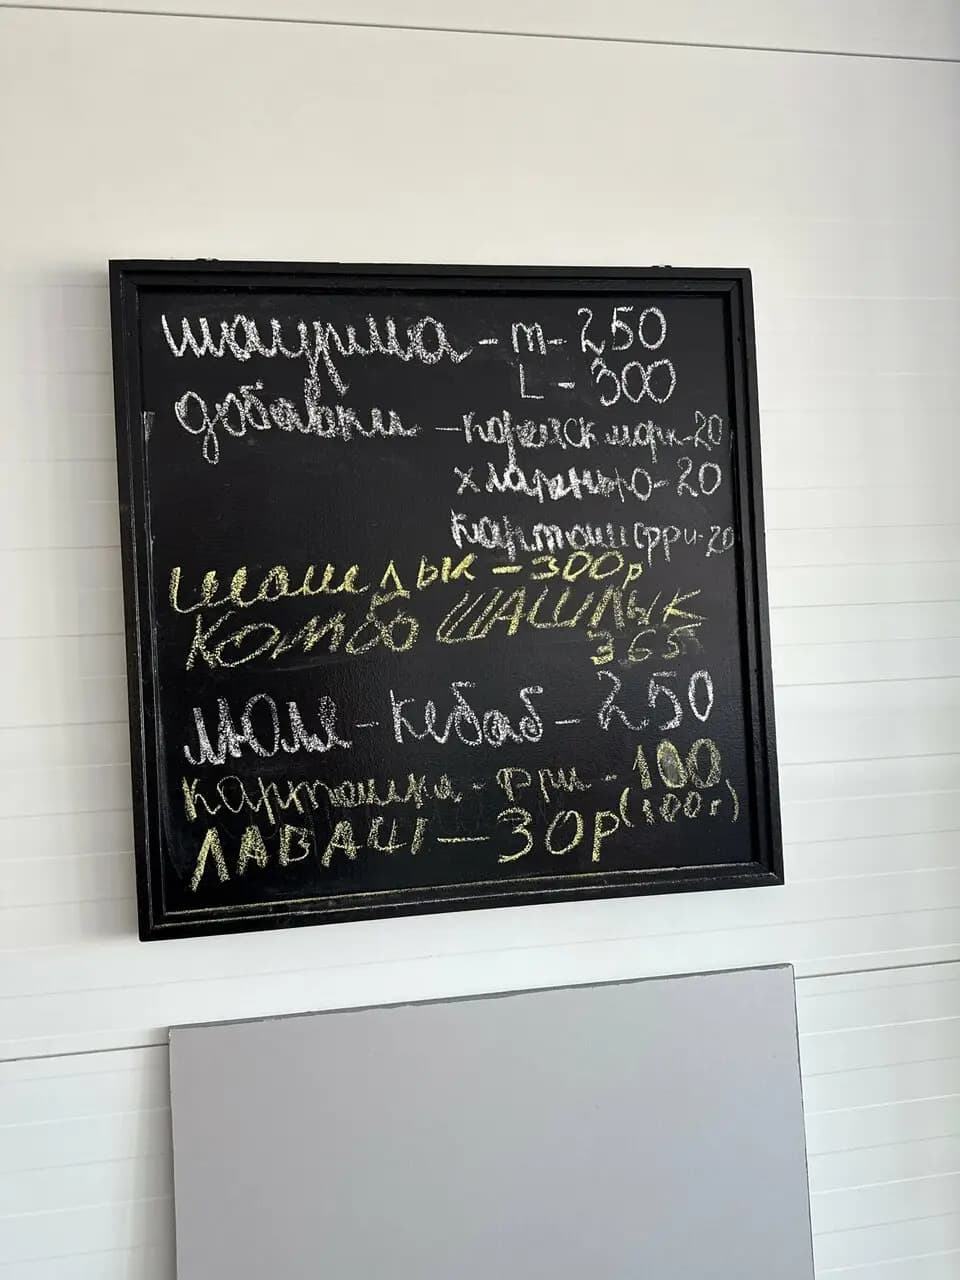 шаурма - m - 250
L - 300
добавки - корейск морк - 20
халапеньо - 20
картош фри - 20
шашлык - 300р
КОМБО ШАШЛЫК
365
люля - кебаб - 250
картошка - фри - 100
(100г)
ЛАВАШ - 30р